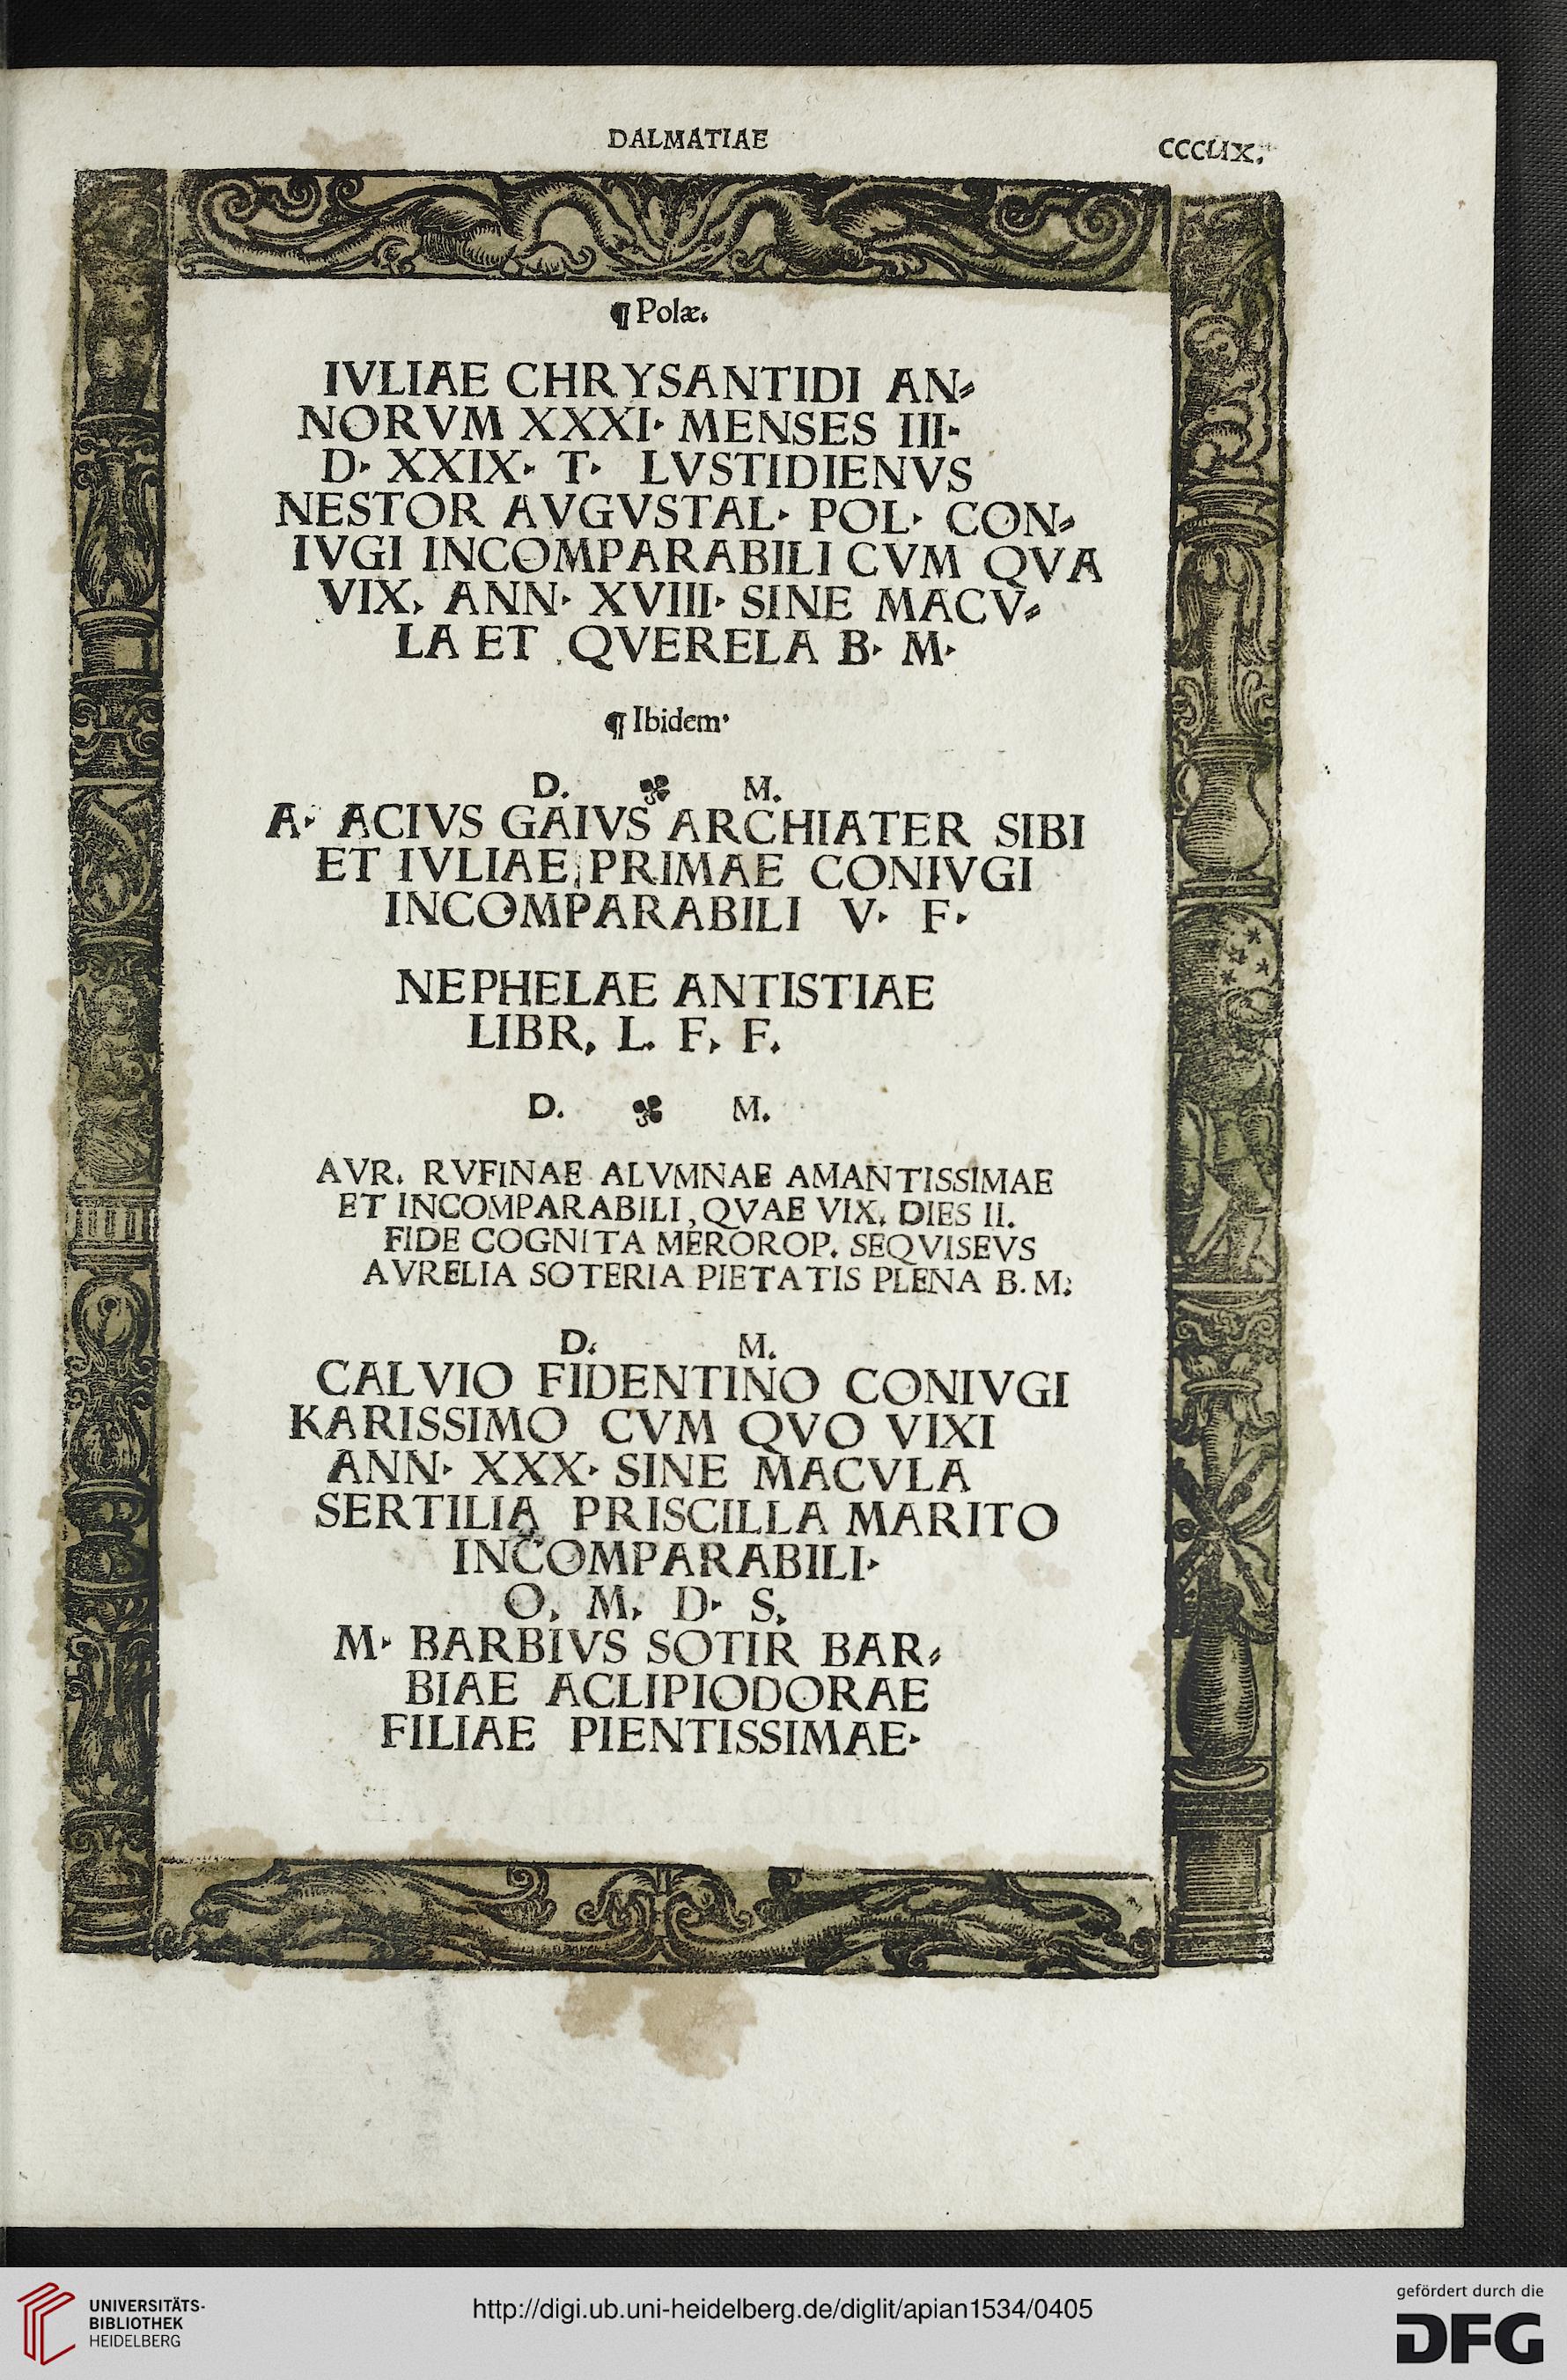 DALMATIAE CCCLIX.
¶ Polæ.
IVLIAE CHRYSANTIDI AN⸗
NORVM XXXI· MENSES III·
D· XXIX· T· LVSTIDIENVS
NESTOR AVGVSTAL· POL· CON⸗
IVGI INCOMPARABILI CVM QVA
VIX, ANN· XVIII· SINE MACV⸗
LA ET QVERELA B· M·
¶ Ibidem·
D. M.
A· ACIVS GAIVS ARCHIATER SIBI
ET IVLIAE PRIMAE CONIVGI
INCOMPARABILI V· F·
NEPHELAE ANTISTIAE
LIBR, L. F, F.
D. M.
AVR. RVFINAE ALVMNAE AMANTISSIMAE
ET INCOMPARABILI, QVAE VIX, DIES II.
FIDE COGNITA MEROROP. SEQVISEVS
AVRELIA SOTERIA PIETATIS PLENA B. M:
D. M.
CALVIO FIDENTINO CONIVGI
KARISSIMO CVM QVO VIXI
ANN· XXX· SINE MACVLA
SERTILIA PRISCILLA MARITO
INCOMPARABILI·
O, M, D· S,
M· BARBIVS SOTIR BAR⸗
BIAE ACLIPIODORAE
FILIAE PIENTISSIMAE·
UNIVERSITÄTS-
BIBLIOTHEK
HEIDELBERG
http://digi.ub.uni-heidelberg.de/diglit/apian1534/0405
gefördert durch die
DFG